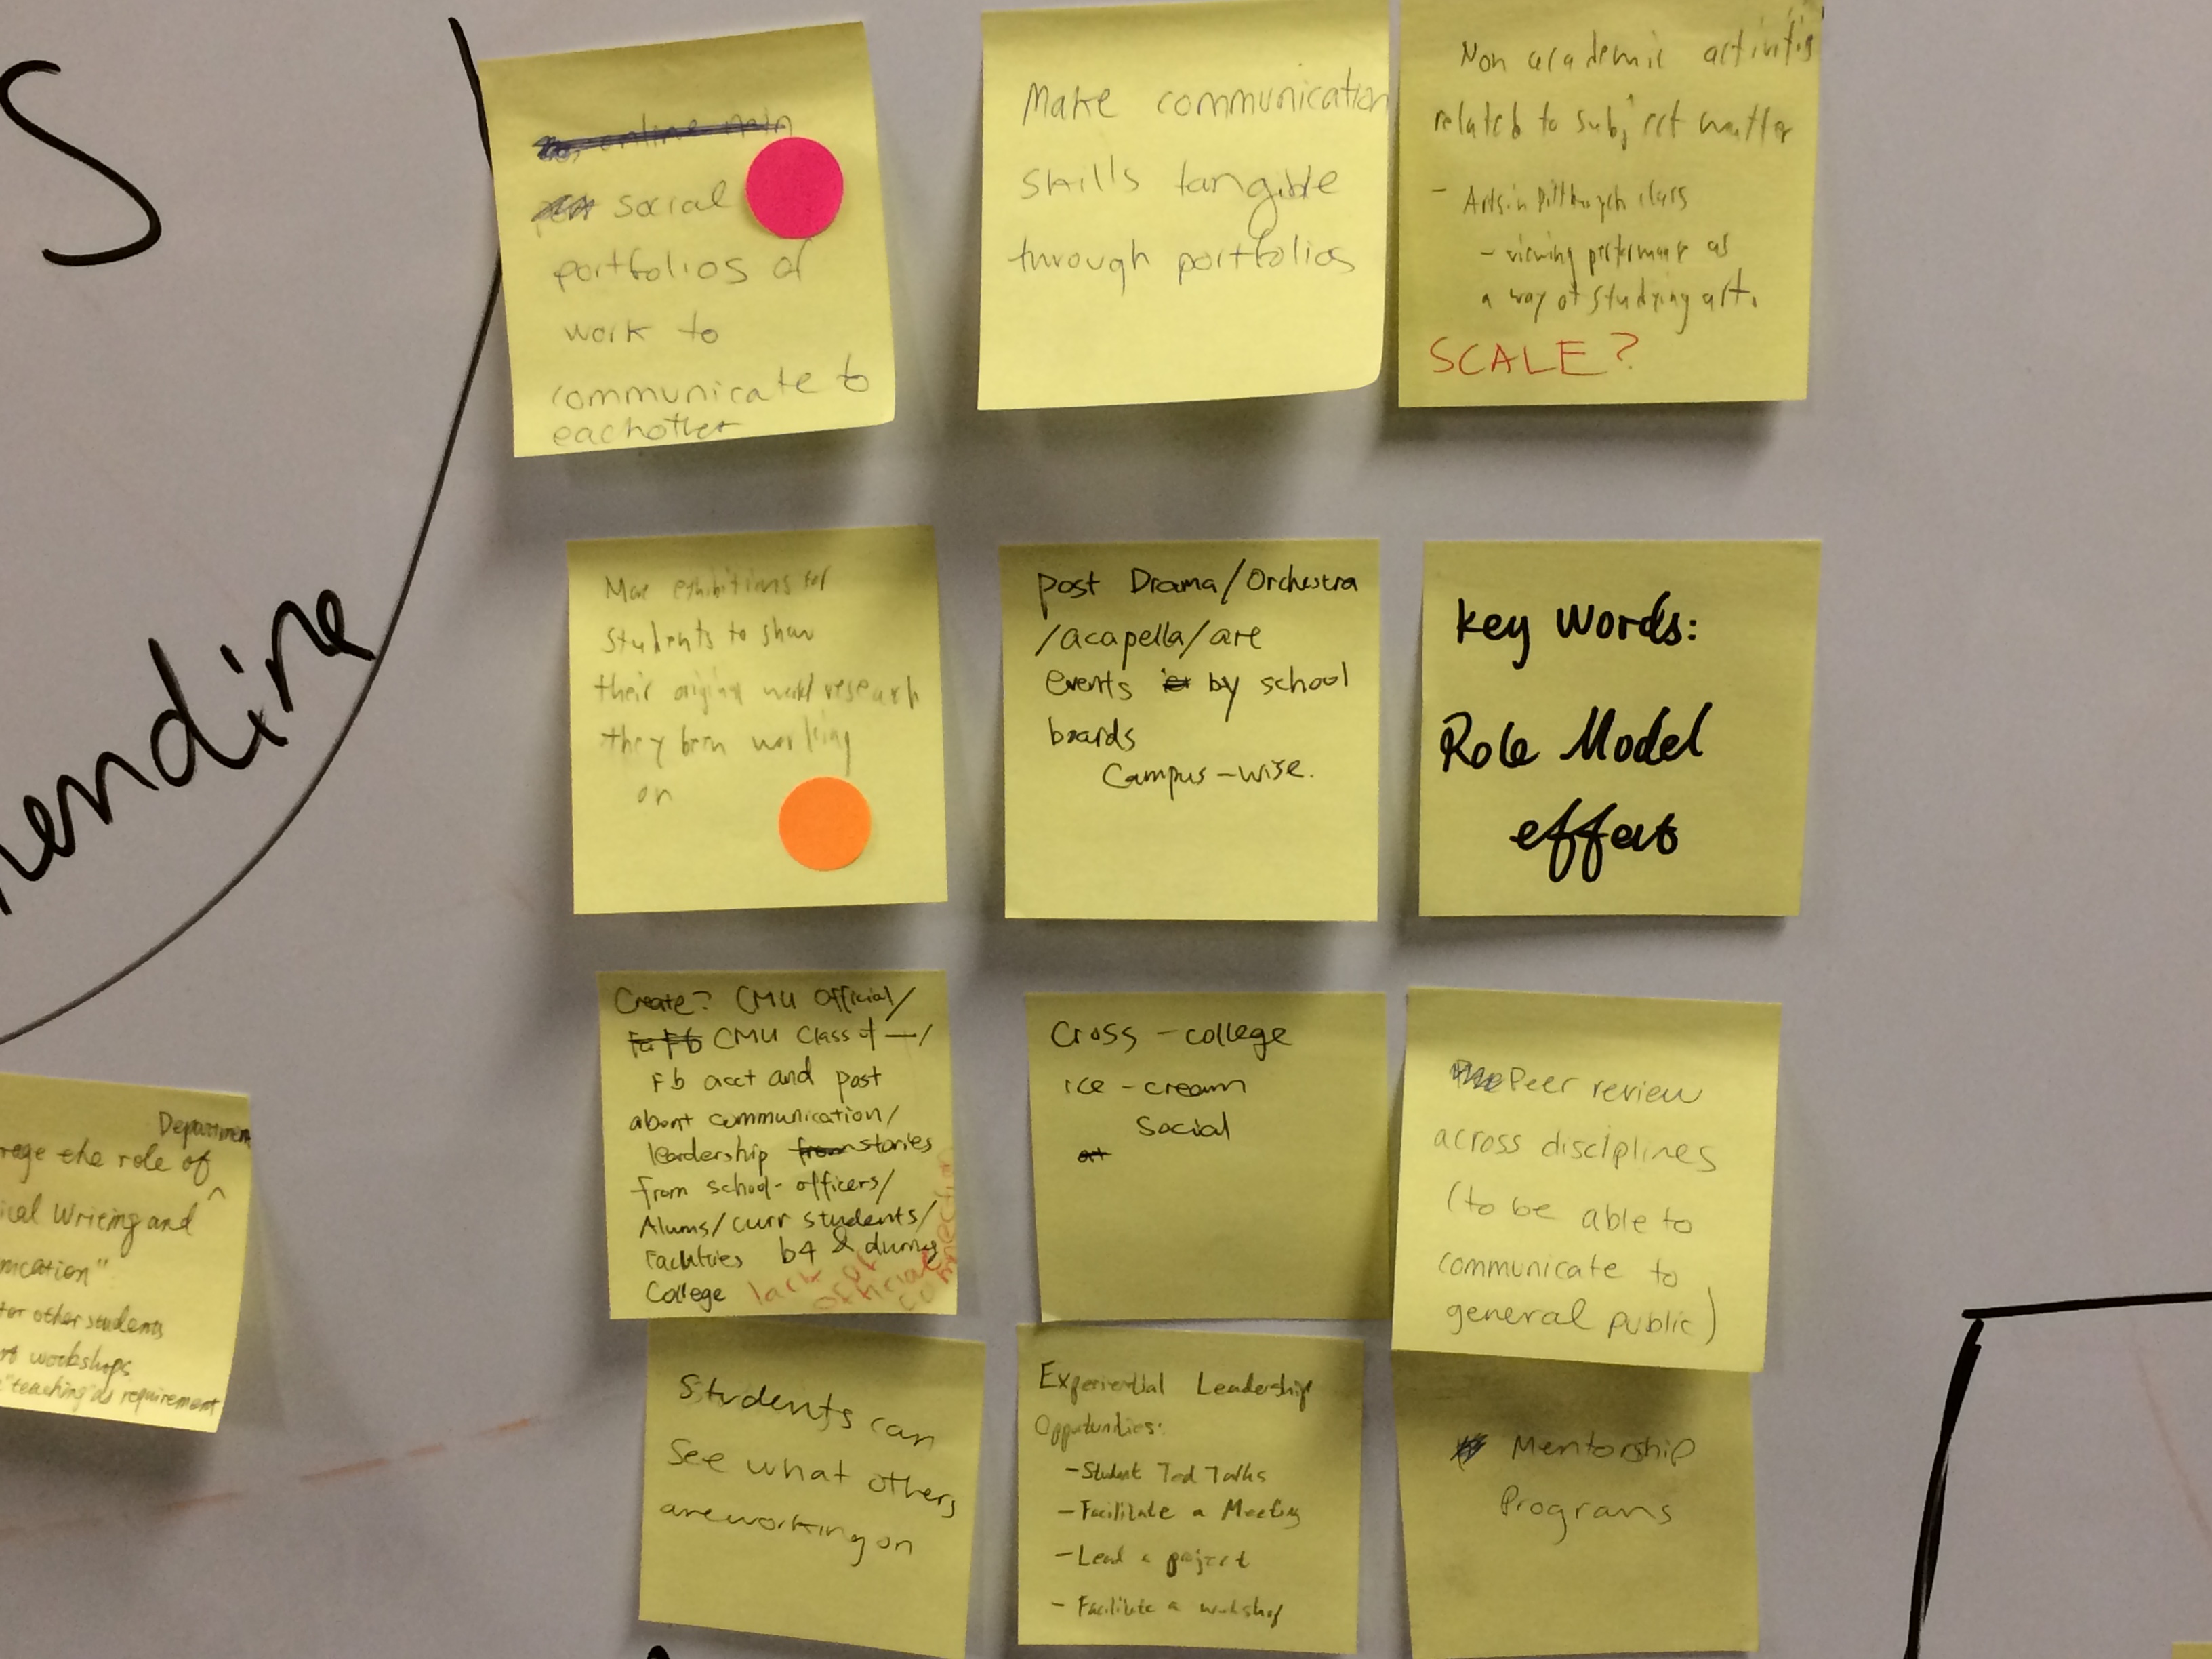 S
endire
online main
social
portfolios of
work to
communicate to
eachother
Make communication
skills tangible
through portfolios
Non academic activitis
related to subject matter
- Arts in Pittburgh class
- viewing performance as
a way of studying art.
SCALE?
More exhibitions for
students to show
their original work/research
they been working
on
post Drama/Orchestra
/acapella/are
events by school
boards
Campus-wise.
Key Words:
Role Model
effect
Create? CMU Official/
Fb CMU Class of —/
Fb acct and post
about communication/
leadership from stories
from school-officers/
Alums/curr students/
Faculties b4 & during
College
lack of official connection
Cross-college
ice-cream
Social
at
Peer review
across disciplines
(to be able to
communicate to
general public)
Department
rage the role of
ical Writing and
nication"
for other students
workshops
"teaching" as requirement
Students can
See what others
are working on
Experiential Leadership
Opportunities:
- Student Ted Talks
- Facilitate a Meeting
- Lead a project
- Facilitate a workshop
Mentorship
Programs